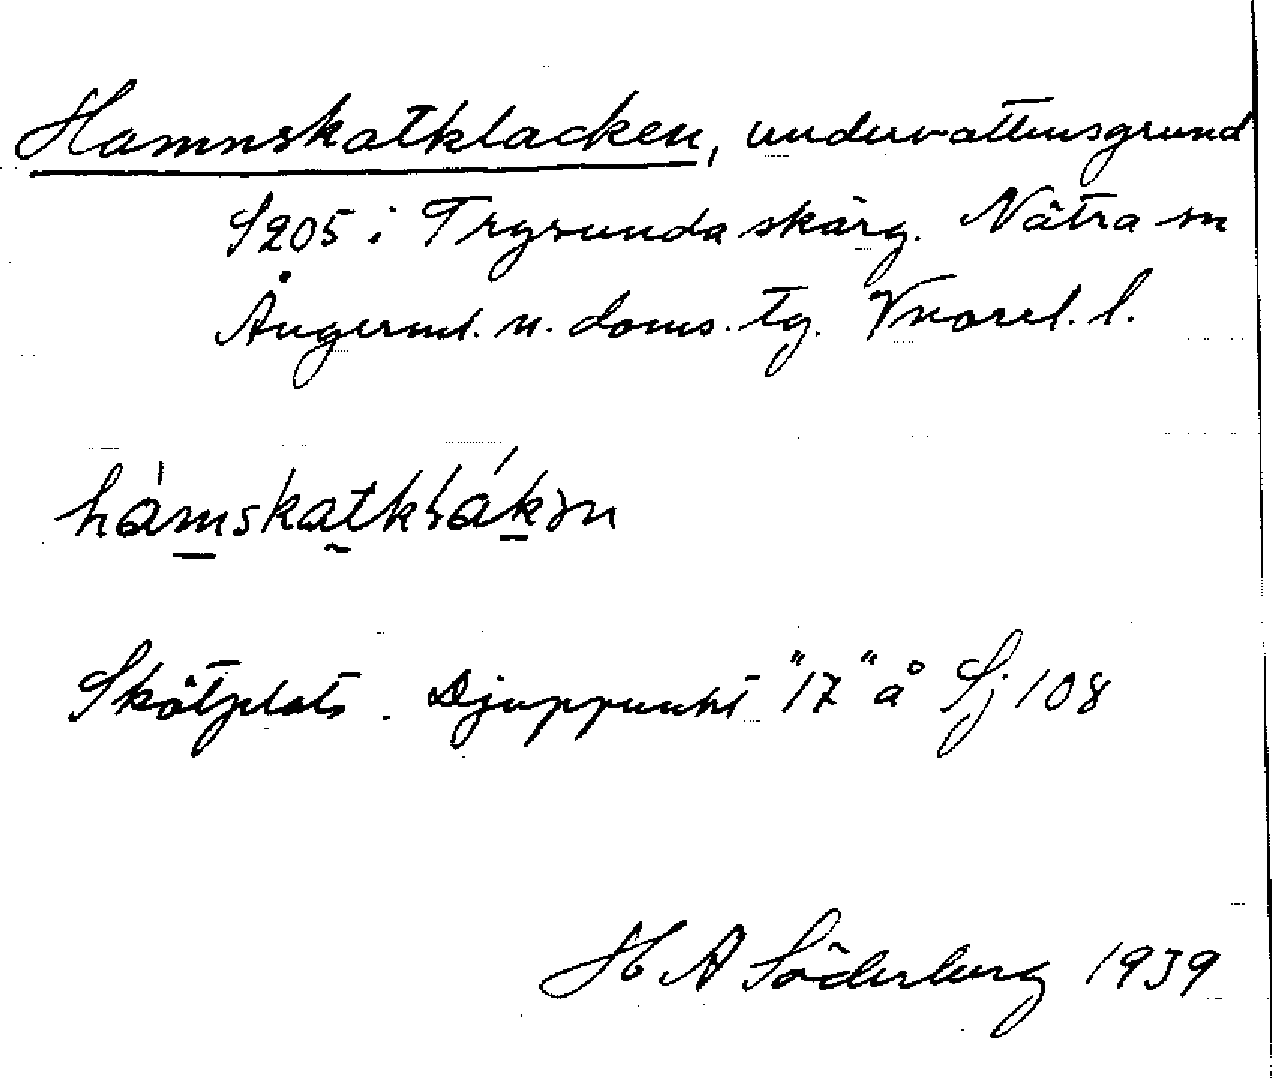 Hamnskatklacken, undervattensgrund
S205 i Trysunda skärg. Nätra sn
Ångerml. n. doms. tg. Vnorrl. l.
hámskatklákən
Skötplats. Djuppunkt "17" å Sj 108
H A Söderberg 1939